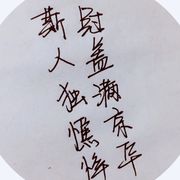 冠盖满京华
斯人独憔悴